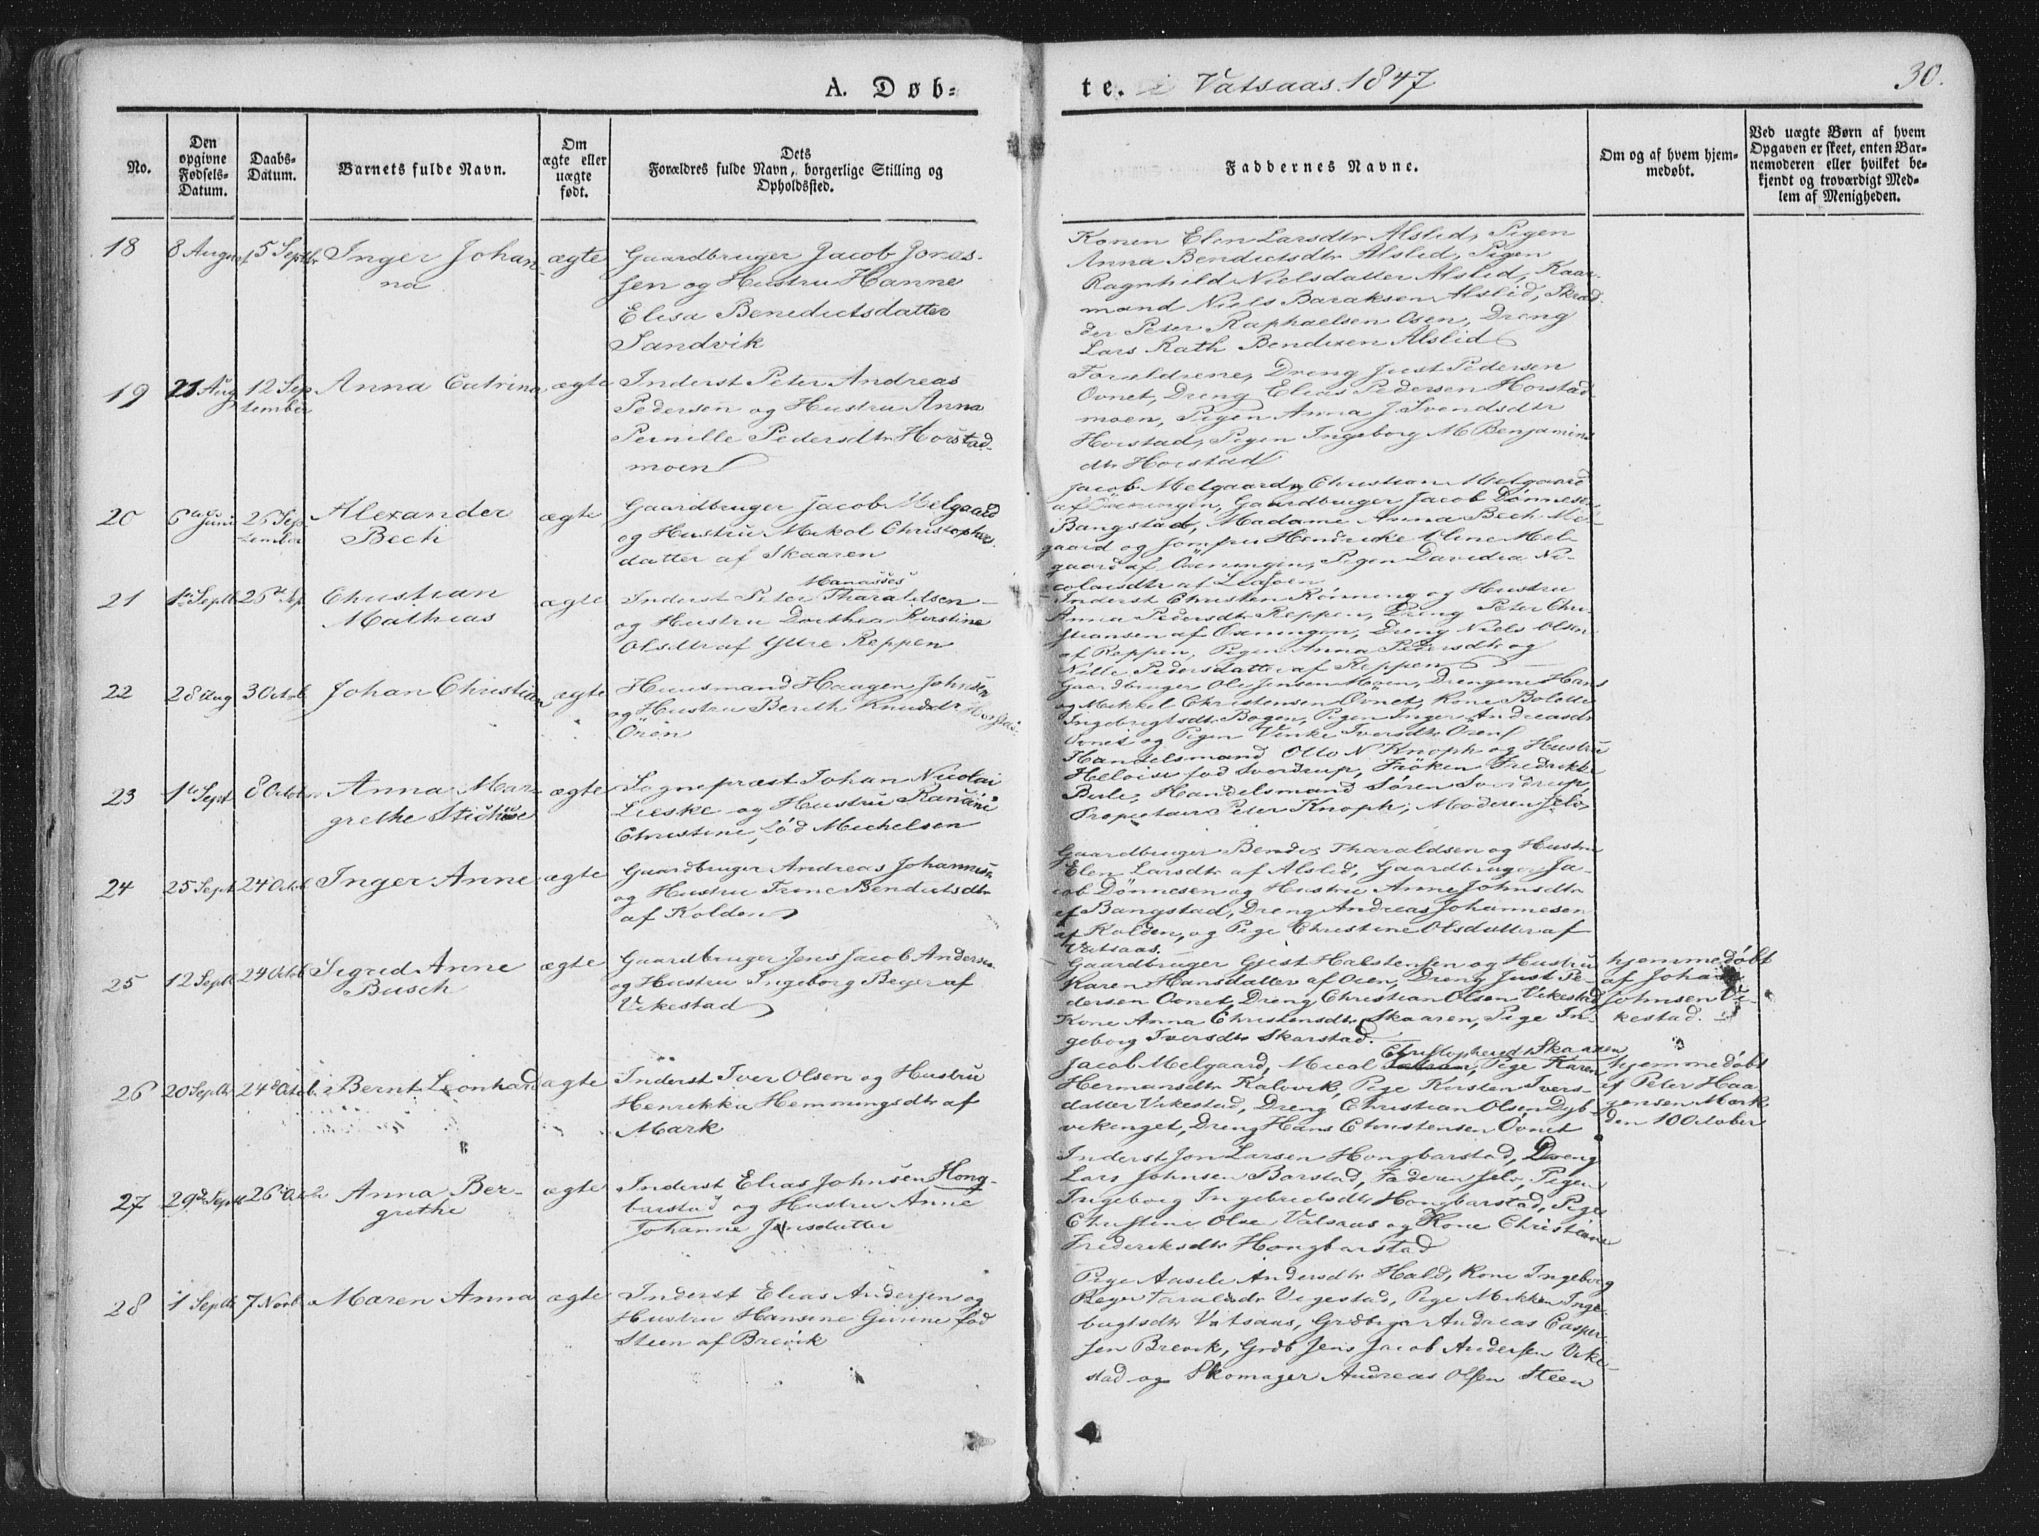 A. Døb-
te. i Vatsaas 1847
30.
No.
Den opgivne Fødsels-Datum.
Daabs-Datum.
Barnets fulde Navn.
Om ægte eller uægte født.
Dets
Forældres fulde Navn, borgerlige Stilling og
Opholdssted.
Faddernes Navne.
Om og af hvem hjem-
medøbt.
Ved uægte Børn af hvem
Opgaven er skeet, enten Bar-
nemoderen eller hvilket be-
kjendt og troværdigt Med-
lem af Menigheden.
18
8 August
5 Septbr
Inger Johan-
na
ægte
Gaardbruger Jacob Jonas-
sen og Hustru Hanne
Elisa Benedictsdatter
Sandvik
Konen Elen Larsdtr Alslid, Pigen
Anna Bendictsdtr Alslid, Pigen
Ragnhild Nielsdatter Alslid, Kaar-
mand Niels Baraksen Alslid, Skræd-
der Peter Raphaelsen Osen, Dreng
Lars Rath Bendixen Alslid
19
21 Aug
12 Sep
tember
Anna Catrina
ægte
Inderst Peter Andreas
Pedersen og Hustru Anna
Pernille Pedersdtr Horstad-
moen
Forældrene, Dreng Just Pedersen
Ovnet, Dreng Elias Pedersen Horstad
moen, Pigen Anna J Svendsdtr
Horstad, Pigen Ingeborg M Benjamins
dtr Horstad
20
6te Juni
26 Sep
tember
Alexander
Bech
ægte
Gaardbruger Jacob Melgaard
og Hustru Mekol Christopher
datter af Skaaren
Jacob Melgaard, Christian Melgaard
af Öxningen, Gaardbruger Jacob Dønnesen
Bangstad, Madame Anna Bech Mel-
gaard og Jomfru Hendrikke Oline Mel-
gaard af Öxningen, Pigen Davidia Ni-
colaisdtr af
21
1ste Septb
26de Sep
Christian
Mathias
ægte
Manasses
Inderst Peter Tharaldsen
og Hustru Dorthea Kirstine
Olsdtr af Yttre Reppen
Inderst Christen Rønning og Hustru
Anna Pedersdtr Reppen, Dreng Peter Chri-
stiansen af Öxningen, Dreng Niels Olsen
af Reppen, Pigen Anna Petersdtr og
Nille Pedersdatter af Reppen
22
28 Aug
3 Octob
Johan Christian
ægte
Huusmand Haagen Johnsen
og Hustru Berith Knudsdtr
Ören
Gaardbruger Ole Jensen Moen, Drengene Hans
og Mekkel Christensen Ovnet, Kone Bolette
Ingebrigtsdtr Bogen, Pigen Inger Andreasdtr
Ovnet og Pigen Venke Iversdtr Ören
23
1te Sept
8 Octob
Anna Mar-
grethe
ægte
Sognepræst Johan Nicolai
Lieske og Hustru
Christine, fød Michelsen
Handelsmand Otto N Knoph og Hustru
Heloise fød Sverdrup, Frøken Fredrikke
Birle, Handelsmand Søren Sverdrup,
Propietair Peter Knoph, Moderen Selv
24
25 Sept
24 Octob
Inger Anne
ægte
Gaardbruger Andreas Johannesen
og Hustru Trine Bendictsdtr
af Kolden
Gaardbruger Bendix Tharaldsen og Hustru
Elen Larsdtr af Alslid, Gaardbruger Ja-
cob Dönnesen og Hustru Anne Johnsdtr
af Bangstad, Dreng Andreas Johannesen
af Kolden, og Pige Christine Olsdatter af
Vatsaas.
25
12 Septb
24 Octob
Sigrid Anne
Busch
ægte
Gaardbruger Jens Jacob Andersen
og Hustru Ingeborg Beyer af
Vikestad
Gaardbruger Gjert Halstensen og Hustru
Karen Hansdatter af Osen, Dreng Just Pe-
dersen Ovnet, Dreng Christian Olsen Vikestad,
Kone Anna Christensdtr Skaaren, Pige In-
geborg Iversdtr Skarstad.
hjemmedøbt
af Johan
Johnsen Vi-
kestad.
26
20 Septbr
24de Octob
Bernt Leonhard
ægte
Inderst Iver Olsen og Hustru
Henrikka Hemmingsdtr af
Mark
Christophersd. Skaaren
Jacob Melgaard, Micol, Pige Karen
Hermansdtr Kalvik, Pige Kirsten Ivers-
datter Vikestad, Dreng Christian Olsen Dyb-
vikenget, Dreng Hans Christensen Ovnet
hjemmedøbt
af Peter Haa-
gensen Mark
den 10 October
27
29de Septb
26de Octob
Anna Ber-
grethe
ægte
Inderst Elias Johnsen Hong-
barstad og Hustru Anne
Johanne Jensdatter
Inderst Jon Larsen Hongbarstad, Dreng
Lars Johnsen Barstad, Faderen Selv, Pigen
Ingeborg Ingebretsdtr Hongbarstad, Pige
Christine Olse Vatsaas og Kone Christiane
Frederiksdtr Hongbarstad
28
1 Septb
7 Novb
Maren Anna
ægte
Inderst Elias Andersen og
Hustru Hansine Gurine fød
Steen af Brevik
Pige Aasele Andersdtr Hald, Kone Ingeborg
Beyer Taraldsdtr Vigestad, Pige Mekken Inge-
brigtsdtr Vatsaas, Grdbrgr Andreas Casper-
sen Brevik, Grdb Jens Jacob Andersen Vike-
stad og Skomager Andreas Olsen Steen